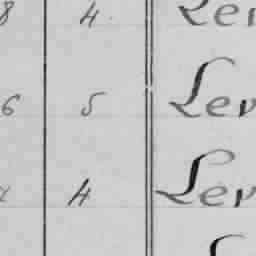 8 4 Lev
6 5 Lev
4 Lev